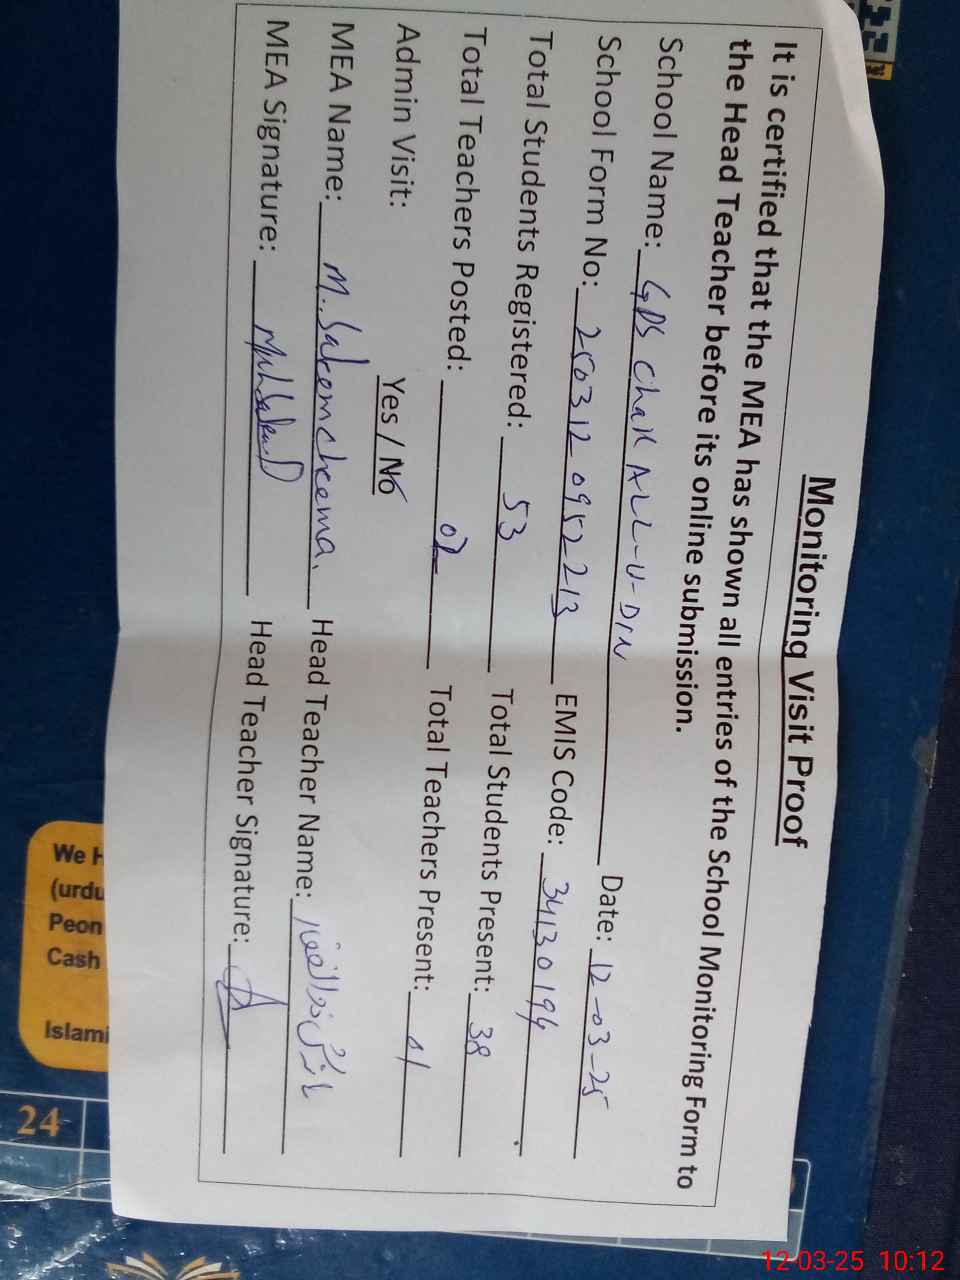 Monitoring Visit Proof
It is certified that the MEA has shown all entries of the School Monitoring Form to
the Head Teacher before its online submission.
School Name: GPS Chak ALL-U-DIN Date: 12-03-25
School Form No: 250312 0952213 EMIS Code: 34130194
Total Students Registered: 53 Total Students Present: 38
Total Teachers Posted: 02 Total Teachers Present: 01
Admin Visit: Yes / No
MEA Name: M. Saleem cheema. Head Teacher Name:
MEA Signature: Head Teacher Signature:
We H
(urdu
Peon
Cash
Islami
24
12-03-25 10:12